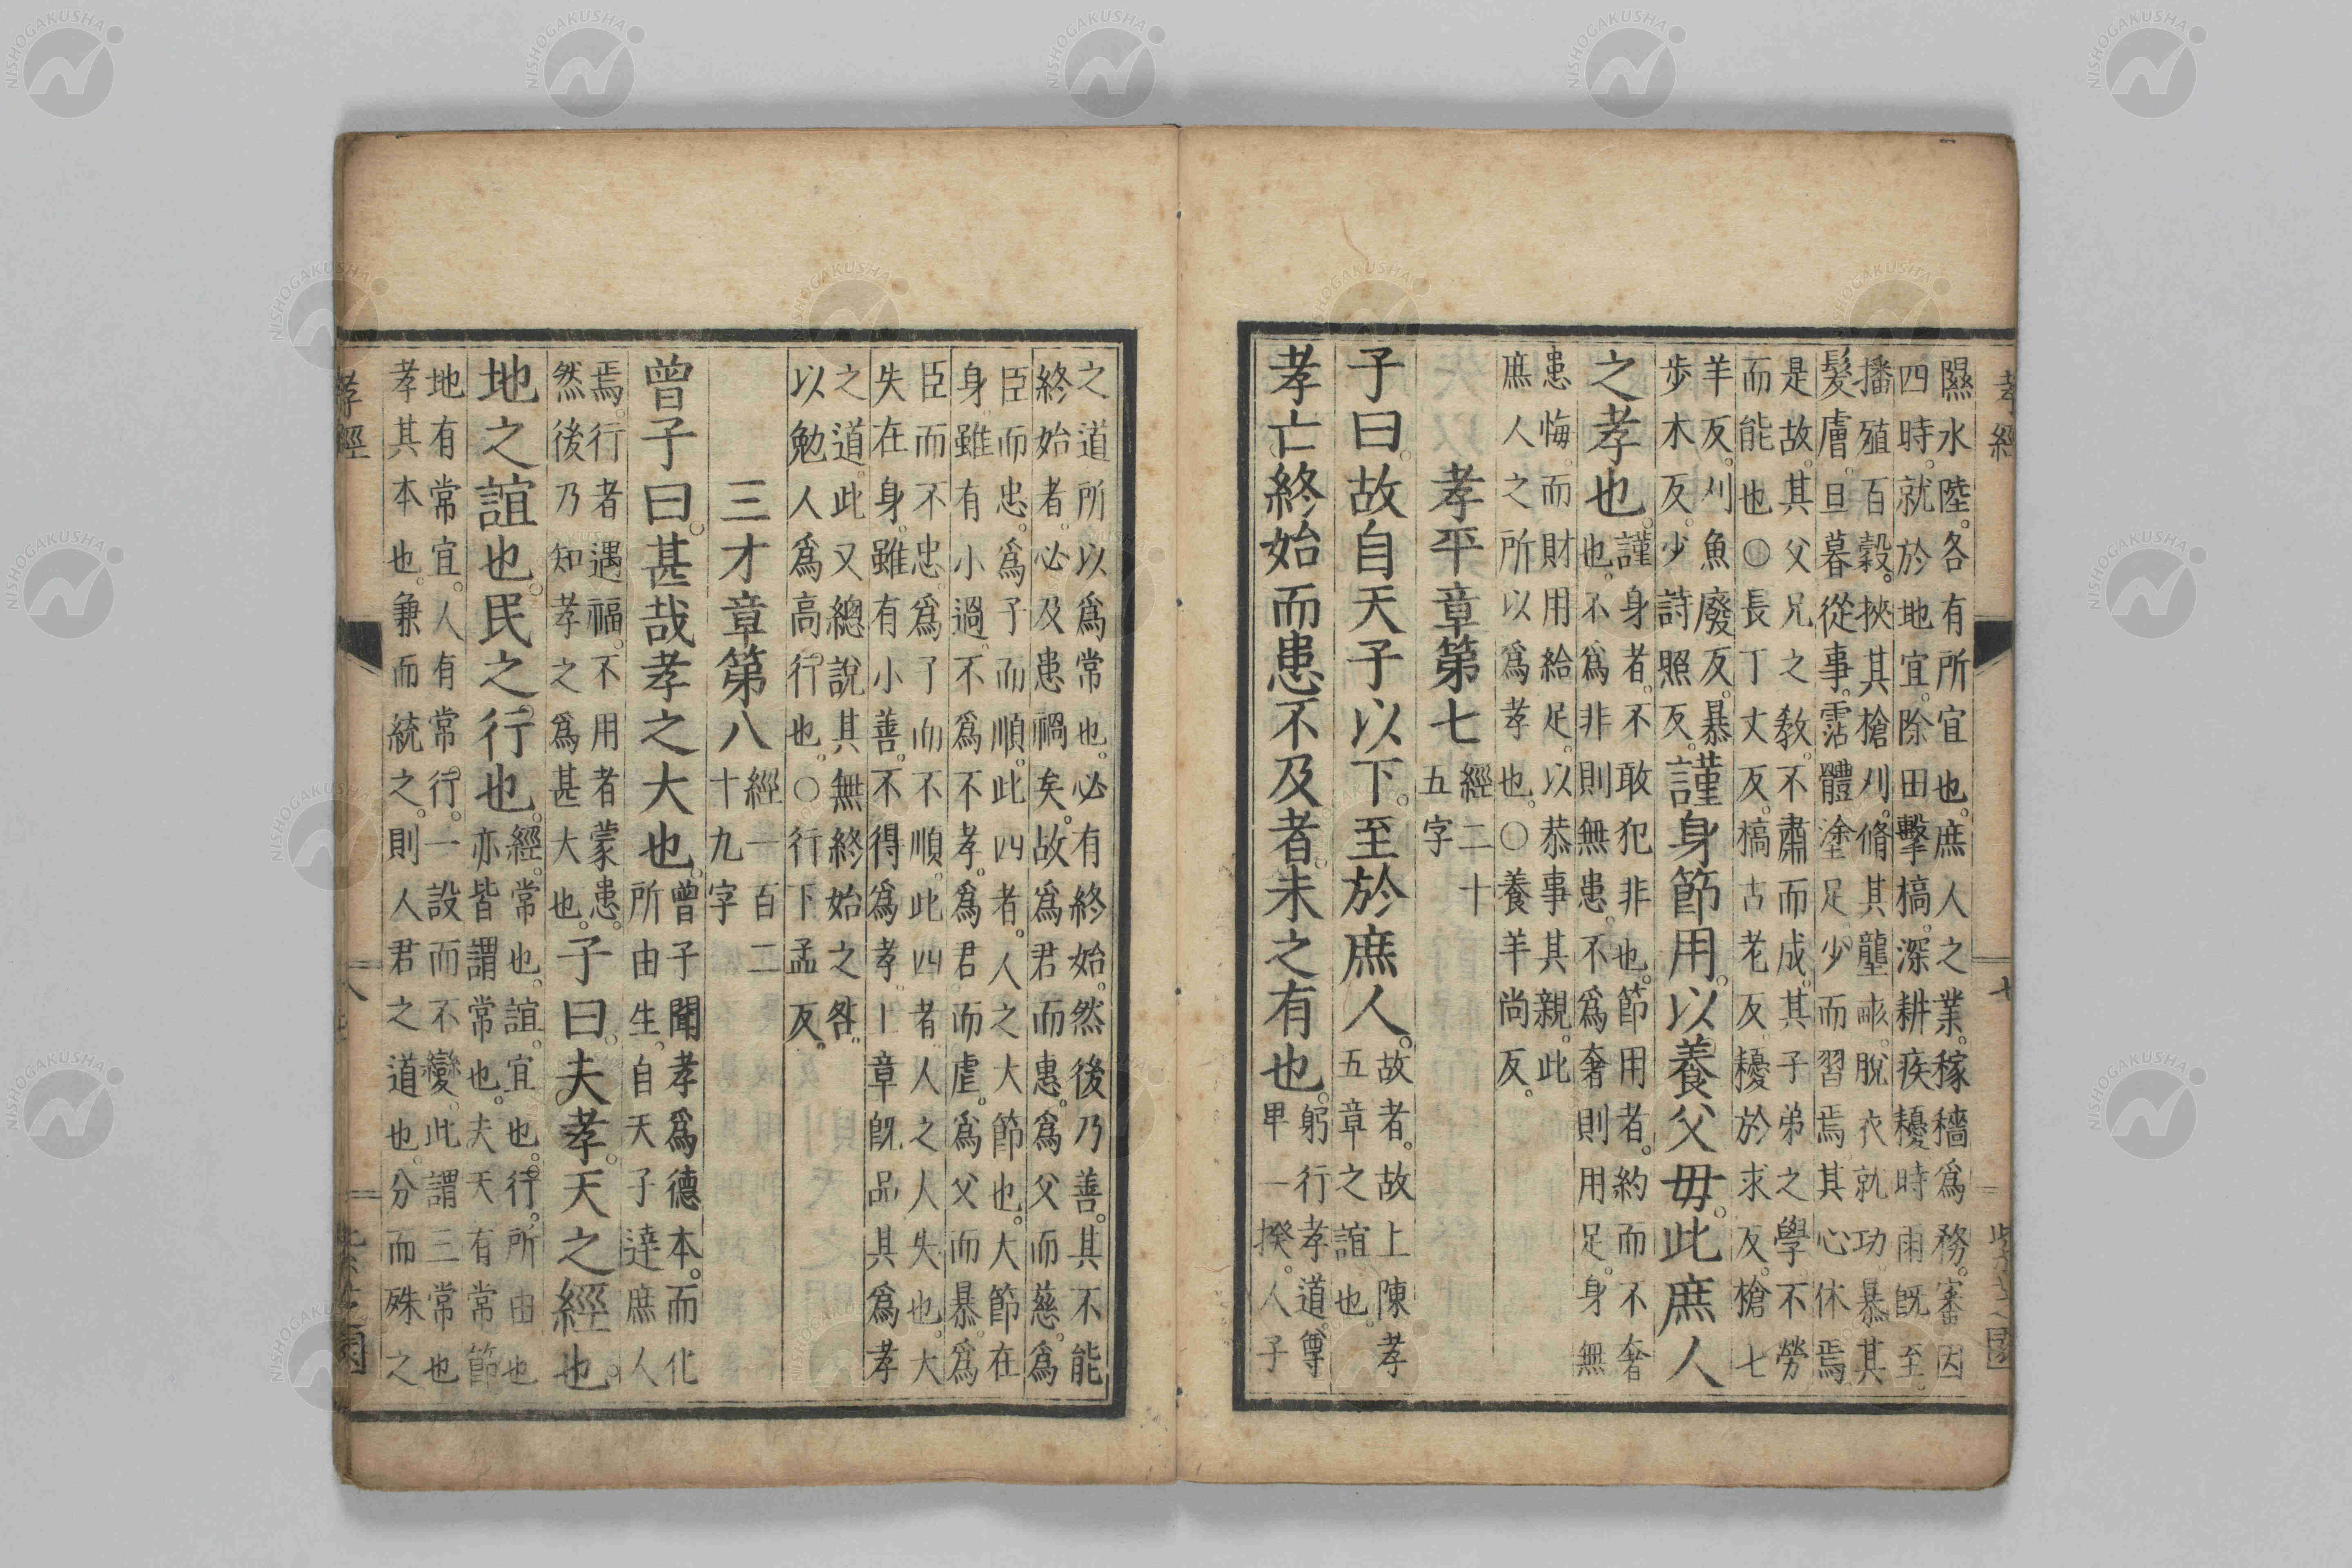 孝經
隰水陸。各有所宜也。庶人之業。稼穡爲務。審因
四時。就於地宜。除田擊槁。深耕疾耰。時雨既至。
播殖百穀。挾其槍刈。脩其壟畝。脫衣就功。暴其
髮膚。旦暮從事。霑體塗足。少而習焉。其心休焉。
是故。其父兄之敎。不肅而成。其子弟之學。不勞
而能也○長丁丈反。槁古老反。耰於求反。槍七
羊反。刈魚廢反。暴
步木反。少詩照反。
謹身節用。以養父毋。此庶人
之孝也。
謹身者。不敢犯非也。節用者。約而不奢
也。不爲非則無患。不爲奢則用足。身無
患悔。而財用給足。以恭事其親。此
庶人之所以爲孝也。○養羊尚反。
孝平章第七
經二十
五字
子曰。故自天子以下。至於庶人。
故者。故上陳孝
五章之誼也。
孝亡終始。而患不及者。未之有也。
躬行孝道。尊
甲一揆。人子
之道所以爲常也。必有終始。然後乃善。其不能
終始者。必及患禍矣。故爲君而惠。爲父而慈。爲
臣而忠。爲子而順。此四者。人之大節也。大節在
身。雖有小過。不爲不孝。爲君而虐。爲父而暴。爲
臣而不忠。爲子而不順。此四者。人之人失也。大
失在身。雖有小善。不得爲孝。章既品其爲孝
之道。此又總說其無終始之咎。
以勉人爲高行也。○行下孟反。
三才章第八
經一百二
十九字
曾子曰。甚哉孝之大也。
曾子聞孝爲德本。而化
所由生。自天子達庶人
焉。行者遇福。不用者蒙患。
然後乃知孝之爲甚大也。
子曰。夫孝。天之經也。
地之誼也。民之行也。
經。常也。誼。宜也。行。所由也
亦皆謂常也。夫天有常節
地有常宜。人有常行。一設而不變。此謂三常也
孝其本也。兼而統之。則人君之道也。分而殊之
孝經